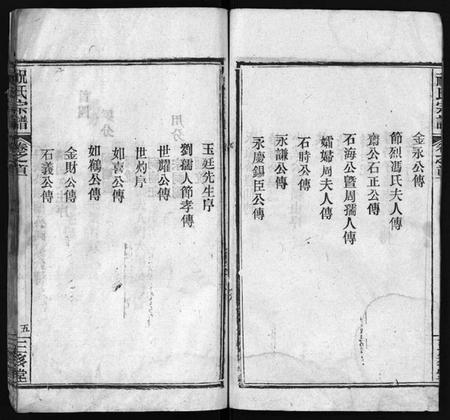 金永公傳
節烈馮氏夫人傳
齋公石正公傳
石海公暨周孺人傳
孀婦周夫人傳
石時公傳
永謙公傳
永慶錫臣公傳
玉廷先生序
劉孺人節孝傳
世耀公傳
世灼序
如喜公傳
如鵷公傳
金財公傳
石義公傳
祝氏宗譜
卷之首
五